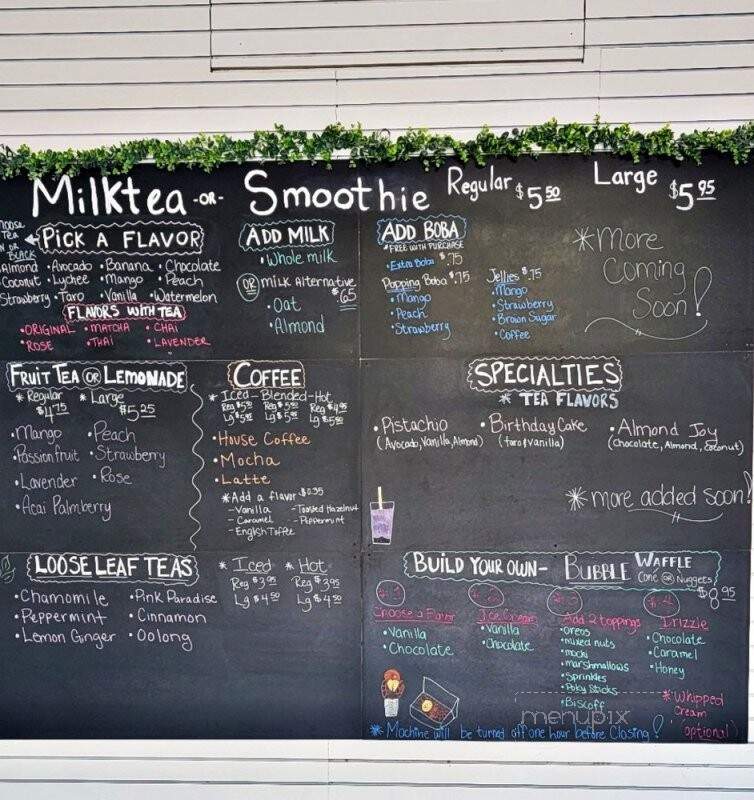 Milktea -OR- Smoothie Regular $5.50 Large $5.95
Tea
BLACK
PICK A FLAVOR
Almond • Avocado • Banana • Chocolate
Coconut • Lychee • Mango • Peach
Strawberry • Taro • Vanilla • Watermelon
FLAVORS WITH TEA
• ORIGINAL • MATCHA • CHAI
• ROSE • THAI • LAVENDER
ADD MILK
• Whole milk
OR milk Alternative
$.65
• Oat
• Almond
ADD BOBA
*FREE WITH PURCHASE
• Extra Boba $.75
Popping Boba $.75
• Mango
• Peach
• Strawberry
Jellies $.75
• Mango
• Strawberry
• Brown Sugar
• Coffee
*More
Coming
Soon!
FRUIT TEA OR LEMONADE
* Regular * Large
$4.75 $5.25
• Mango • Peach
• Passionfruit • Strawberry
• Lavender • Rose
• Acai Palmberry
COFFEE
* Iced - Blended - Hot
Reg Reg Reg $4.95
Lg Lg Lg
• House Coffee
• Mocha
• Latte
*Add a flavor
- Vanilla - Toasted Hazelnut
- Caramel - Peppermint
- English Toffee
SPECIALTIES
* TEA FLAVORS
• Pistachio • Birthday Cake • Almond Joy
(Avocado, Vanilla, Almond) (taro & vanilla) (Chocolate, Almond, Coconut)
* more added soon!
LOOSE LEAF TEAS
• Chamomile • Pink Paradise
• Peppermint • Cinnamon
• Lemon Ginger • Oolong
* Iced * Hot
Reg $3.95 Reg $3.95
Lg $4.50 Lg $4.50
BUILD YOUR OWN - BUBBLE WAFFLE
Cone OR Nuggets
$8.95
Choose a Flavor
• Vanilla
• Chocolate
Ice Cream
• Vanilla
• Chocolate
Add 2 toppings
• oreos
• mixed nuts
• mochi
• marshmallows
• Sprinkles
• Poky Sticks
• Biscoff
Drizzle
• Chocolate
• Caramel
• Honey
* Whipped
Cream
(optional)
menupix
* Machine will be turned off one hour before Closing!